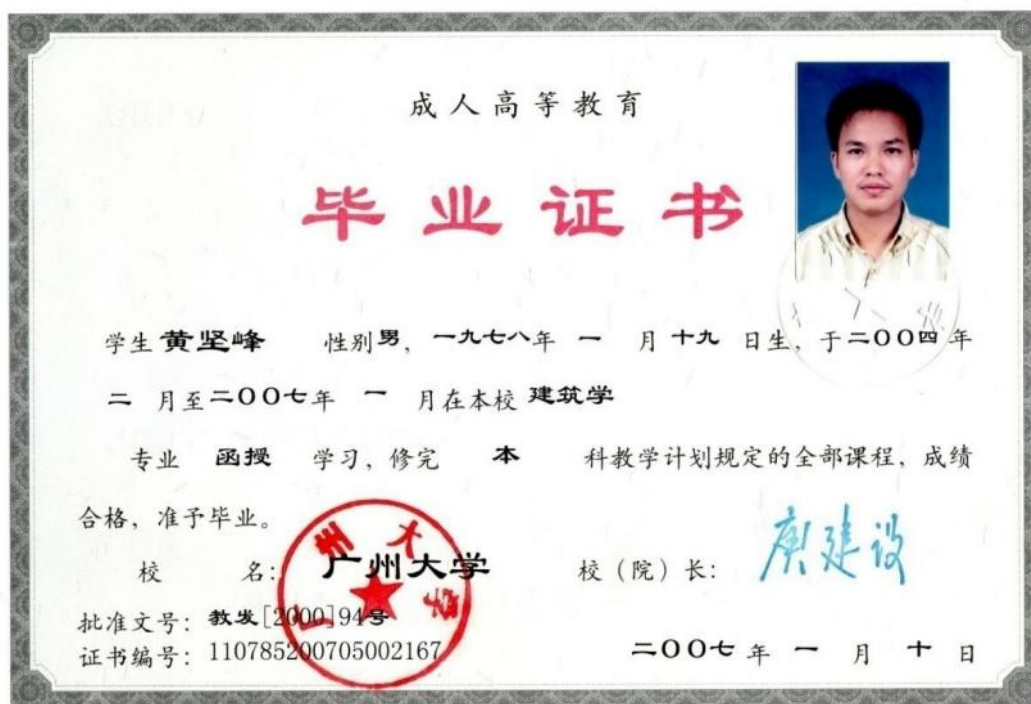 成人高等教育
毕业证书
学生 黄坚峰 性别男，一九七八年 一 月 十九 日生，于二〇〇四年
二 月至二〇〇七年 一 月在本校 建筑学
专业 函授 学习，修完 本 科教学计划规定的全部课程，成绩
合格，准予毕业。
校 名：广州大学 校（院）长：庾建设
广州大学
批准文号：教发[2000]94号
证书编号：110785200705002167
二〇〇七 年 一 月 十 日